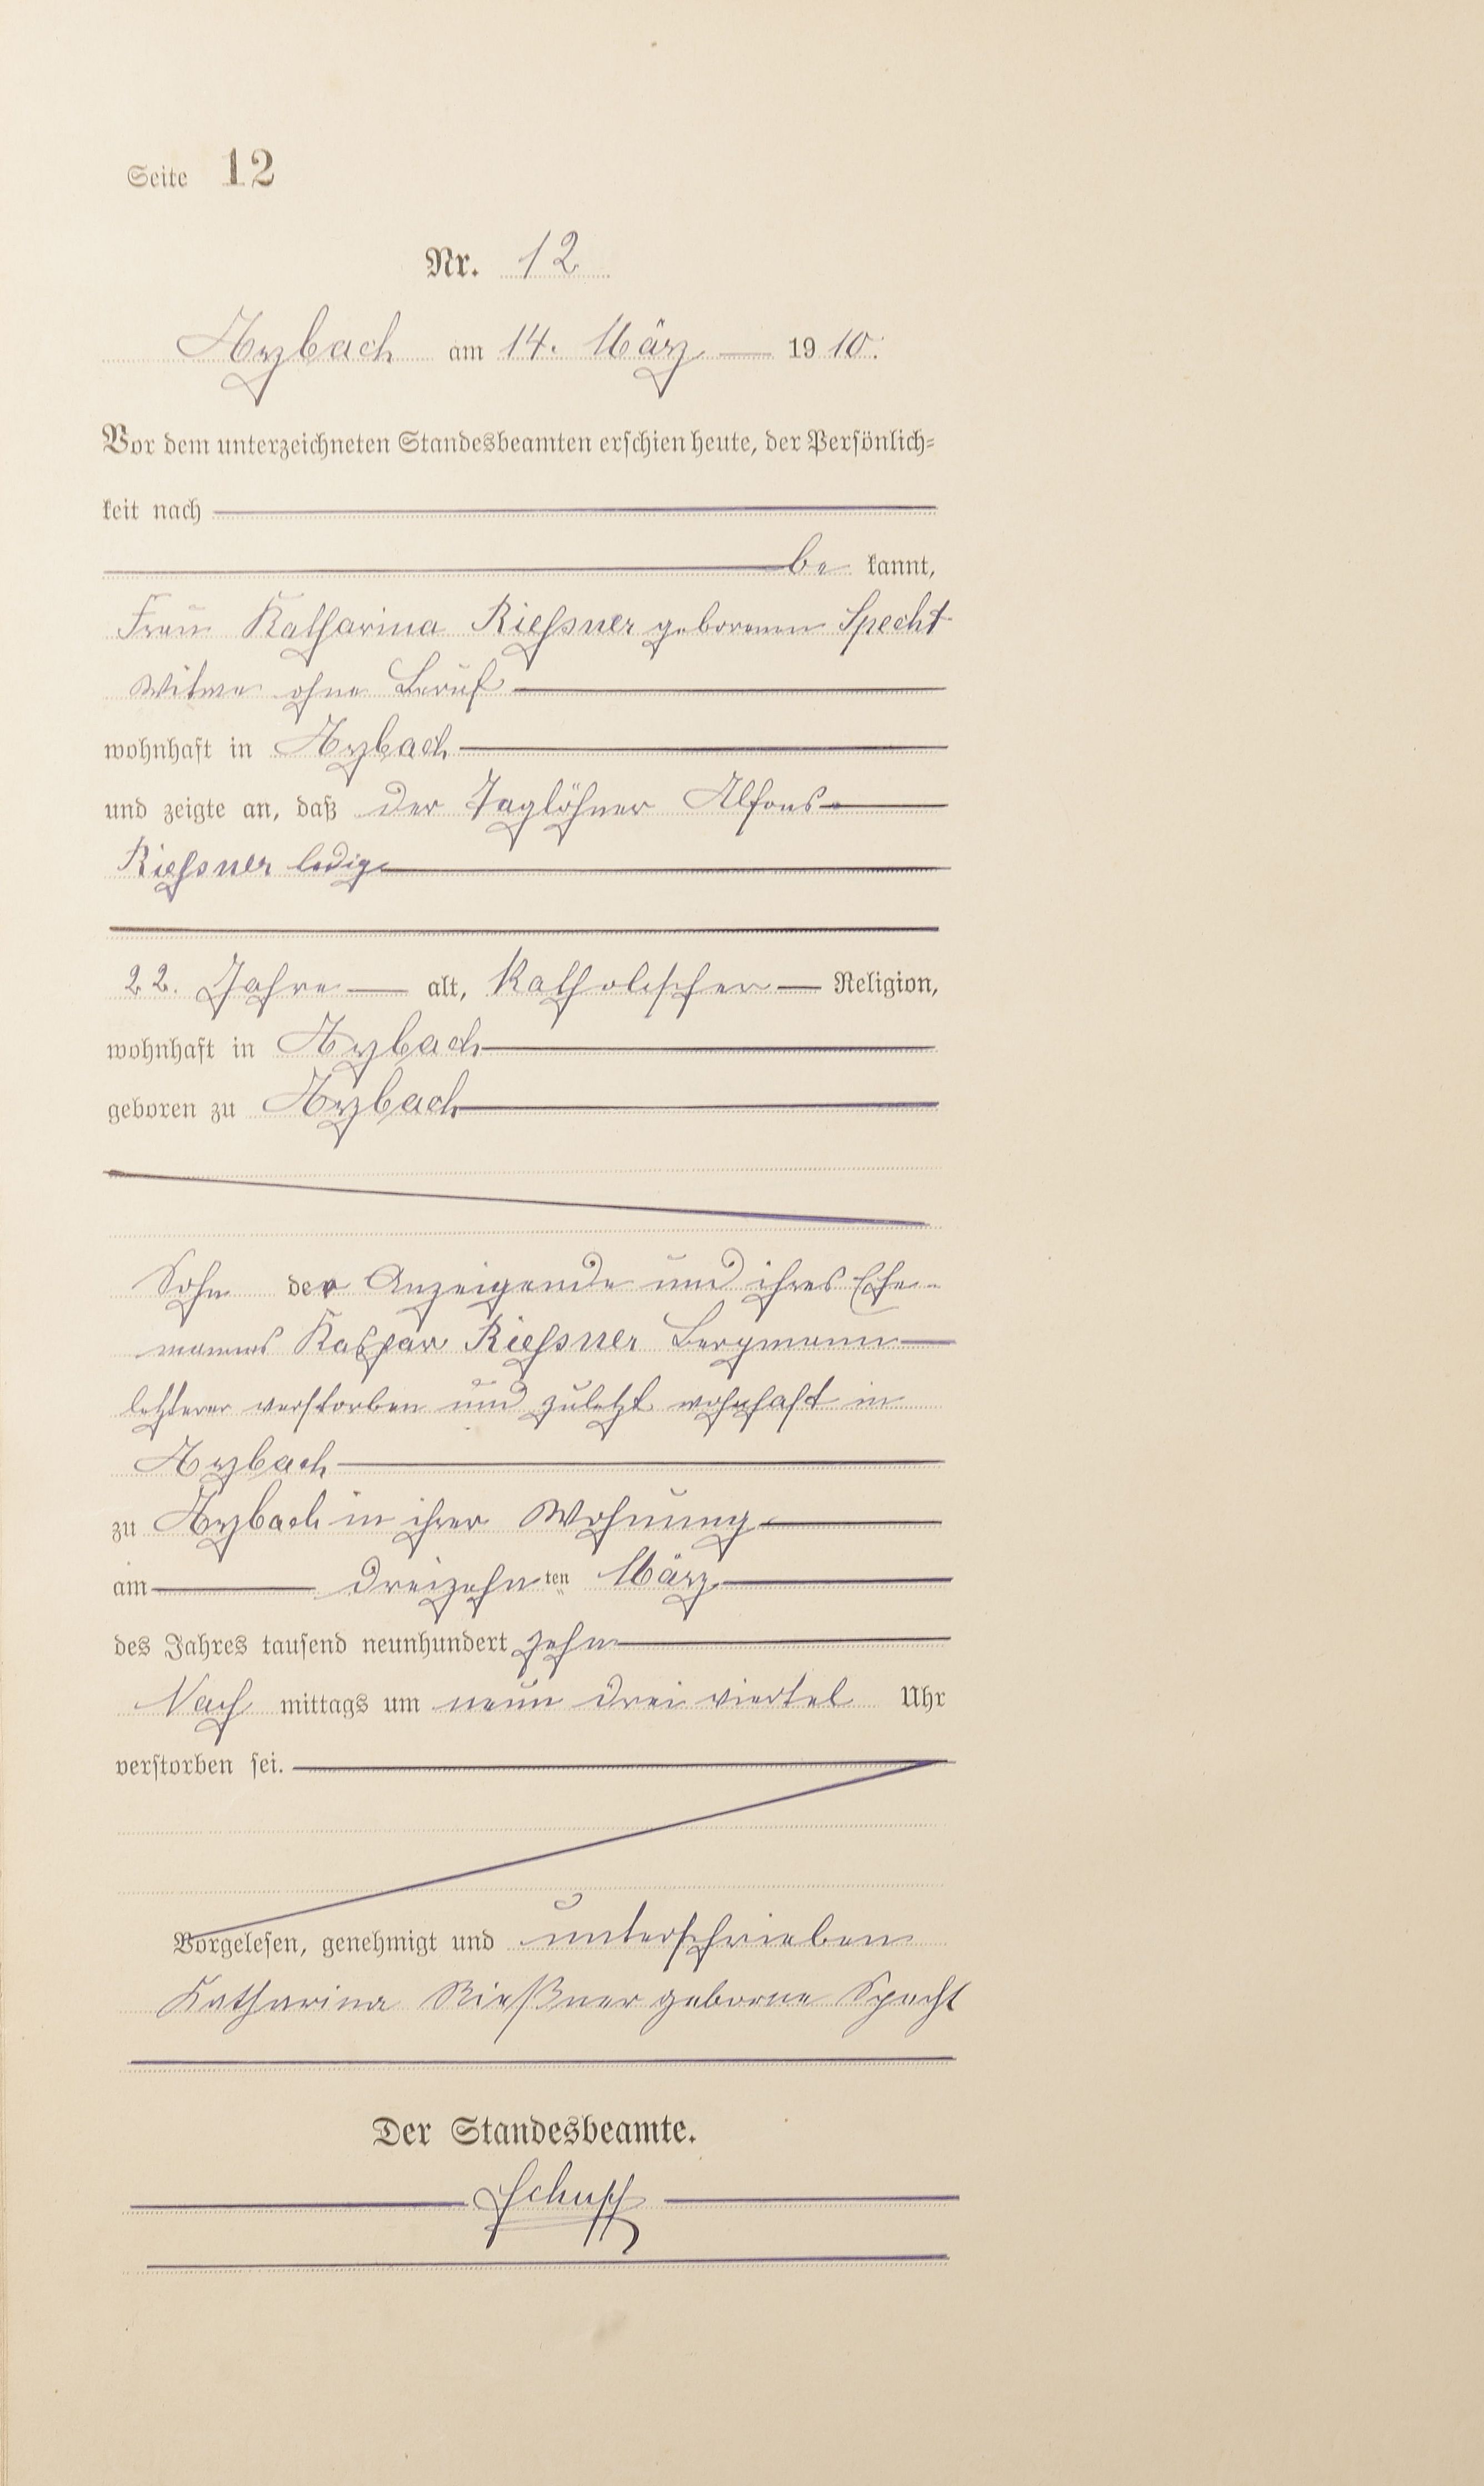 Seite 12
Nr. 12
Arzbach am 14. März 1910.
Vor dem unterzeichneten Standesbeamten erschien heute, der Persönlich-
keit nach
be kannt,
Frau Katharina Rießner geborenen Specht
Witwe ohne Beruf
wohnhaft in Arzbach
und zeigte an, daß der Taglöhner Alfons
Rießner ledig
22. Jahre alt, Katholischer Religion,
wohnhaft in Arzbach
geboren zu Arzbach
Sohn der Anzeigende und ihres Ehe-
mannes Kaspar Rießner Bergmann
letzterer verstorben und zuletzt wohnhaft in
Arzbach
zu Arzbach in ihrer Wohnung
am dreizehn ten März
des Jahres tausend neunhundert zehn
Nach mittags um neun drei viertel Uhr
verstorben sei.
Vorgelesen, genehmigt und unterschrieben
Katharina Rießner geborne Specht
Der Standesbeamte.